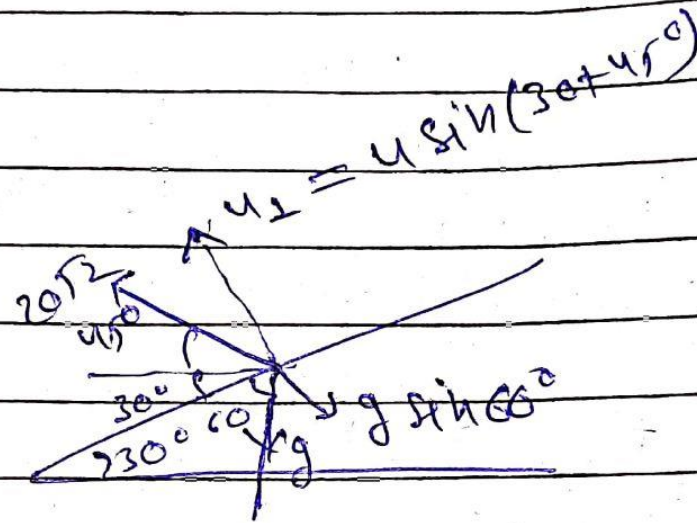 u⊥ = u sin(30+45°)
20√2
45°
30°
30° 60
g sin 60°
g